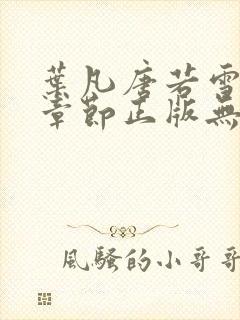 葉凡唐若雪
章節正版無
風騷的小哥哥